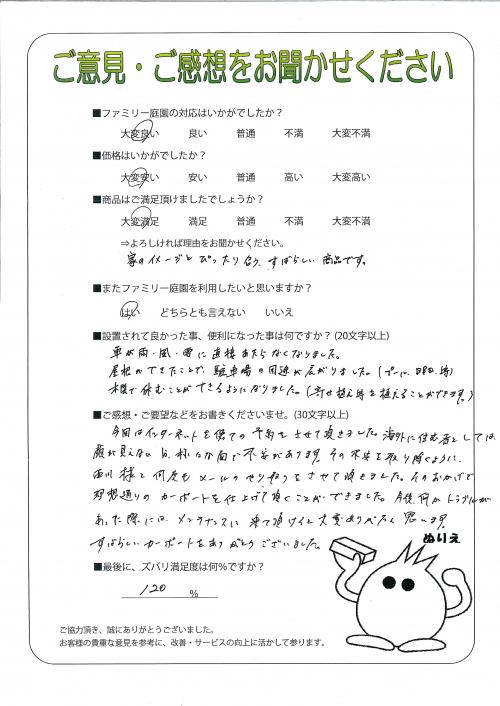 ご意見・ご感想をお聞かせください
■ファミリー庭園の対応はいかがでしたか？
大変良い 良い 普通 不満 大変不満
■価格はいかがでしたか？
大変安い 安い 普通 高い 大変高い
■商品はご満足頂けましたでしょうか？
大変満足 満足 普通 不満 大変不満
⇒よろしければ理由をお聞かせください。
家のイメージとぴったり合う、すばらしい商品です。
■またファミリー庭園を利用したいと思いますか？
はい どちらとも言えない いいえ
■設置されて良かった事、便利になった事は何ですか？(20文字以上)
車が雨・風・雪に直接あたらなくなりました。
屋根ができたことで、駐車場の用途が広がりました。
休むことができるようになりました。
■ご感想・ご要望などをお書きくださいませ。(30文字以上)
今回はインターネットを使ての予約をさせて頂きました。海外に住む者としては、
顔が見えない分、様々な面で不安があります。その不安を取り除くように、
様と何度もメールのやり取りをさせて頂きました。そのおかげで
予想通りのカーポートを仕上げて頂くことができました。今後、何かトラブルが
あった際には、メンテナンスに来て頂けると大変ありがたく思います。
すばらしいカーポートをありがとうございました。
ぬりえ
■最後に、ズバリ満足度は何％ですか？
120 ％
ご協力頂き、誠にありがとうございました。
お客様の貴重な意見を参考に、改善・サービスの向上に活かして参ります。